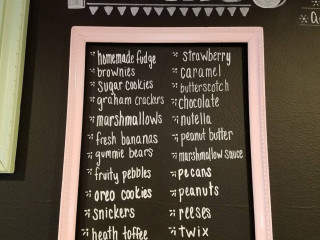 homemade fudge
brownies
sugar cookies
graham crackers
marshmallows
fresh bananas
gummie bears
fruity pebbles
oreo cookies
snickers
heath toffee
strawberry
caramel
butterscotch
chocolate
nutella
peanut butter
marshmallow sauce
pecans
peanuts
reeses
twix